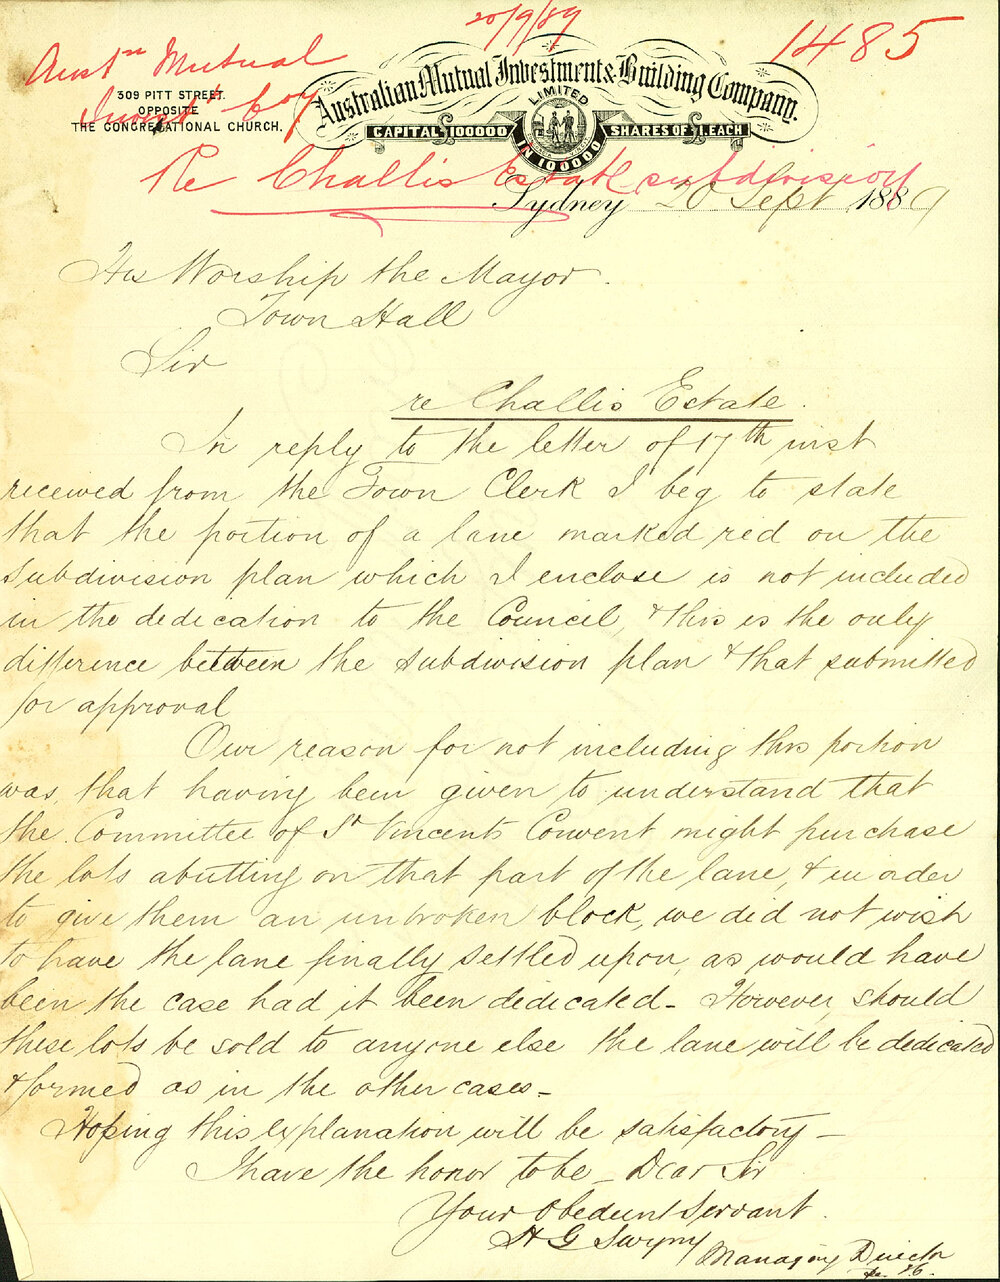 20/9/89
1485
Austn Mutual
Invest Coy
Re Challis Estate subdivision
309 PITT STREET.
OPPOSITE
THE CONGREGATIONAL CHURCH.
Australian Mutual Investment & Building Company.
LIMITED
CAPITAL £100000 IN 100000 SHARES OF £1. EACH
Sydney 20 Sept 1889
His Worship the Mayor.
Town Hall
Sir
re Challis Estate.
In reply to the letter of 17th inst
received from the Town Clerk I beg to state
that the portion of a lane marked red on the
subdivision plan which I enclose is not included
in the dedication to the Council, & this is the only
difference between the subdivision plan & that submitted
for approval
Our reason for not including this portion
was, that having been given to understand that
the Committee of St Vincents Convent might purchase
the lots abutting on that part of the lane, & in oder
to give them an unbroken block, we did not wish
to have the lane finally settled upon, as would have
been the case had it been dedicated - However, should
these lots be sold to anyone else the lane will be dedicated
& formed as in the other cases -
Hoping this explanation will be satisfactory -
I have the honor to be - Dear Sir
Your obedient servant.
H G Swyny
Managing Director